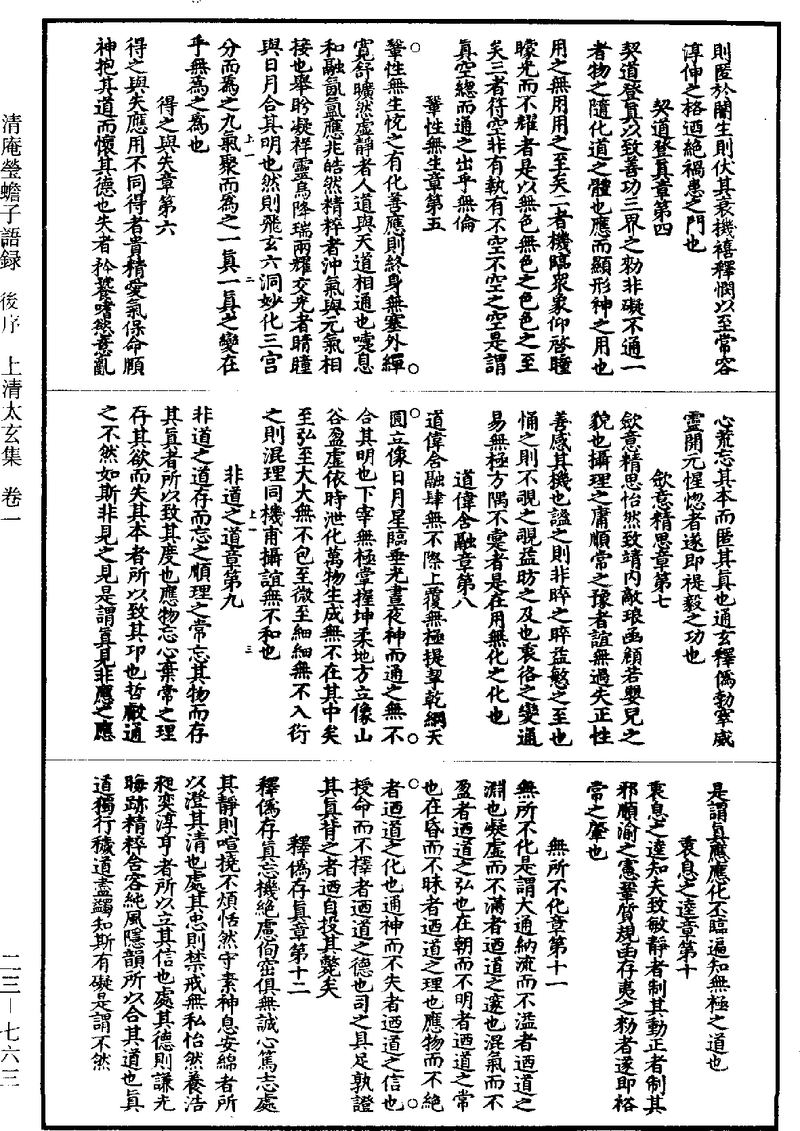 則匿於闇生則伏其衰機禧釋憫以至常容
淳伸之格迺絕禍患之門也
契道登真章第四
契道登真以致善功三界之勑非礙不通一
者物之隨化道之體也應而顯形神之用也
用之無用用之至矣二者機臨眾象仰啓瞳
曚光而不耀者是以無色無色之色色之至
矣三者符空非有執有不空不空之空是謂
真空總而通之出乎無倫
鞏性無生章第五
鞏性無生悅之有化善應則終身無塞外繟
寬舒曠然虛靜者人道與天道相通也嚏息
和融氤氳應兆皓然精粹者沖氣與元氣相
接也舉眸凝祥靈烏降瑞兩耀交光者睛瞳
與日月合其明也然則飛玄六洞妙化三宮
分而為之九氣聚而為之一真一真之變在
乎無為之為也
得之與失章第六
得之與失應用不同得者貴精愛氣保命順
神抱其道而懷其德也失者矜饕嗜慾喜亂
心荒忘其本而匿其真也通玄釋僞勃窣威
靈開元惺惚者遂即禔毅之功也
歛意精思章第七
歛意精思怡然致靖內敵琅函顧若嬰兒之
貌也攝理之庸順常之豫者誼無過失正性
善感其機也謐之則非晬之晬益慜之至也
悀之則不覗之覗益昉之及也裵絡之變通
易無極方隅不橐者是在用無化之化也
道偉含融章第八
道偉含融肆無不際上覆無極提挈乾綱天
圓立像日月星臨垂光晝夜神而通之無不
合其明也下宰無極掌握坤柔地方立像山
谷盈虛依時泄化萬物生成無不在其中矣
至弘至大大無不包至微至細細無不入衍
之則混理同機甫攝誼無不和也
非道之道章第九
非道之道存而忘之順理之常忘其物而存
其真者所以致其度也應物忘心棄常之理
存其欲而失其本者所以致其邛也哲獻通
之不然如斯非見之見是謂真見非應之應
是謂真應應化不臨遍知無極之道也
裵息之達章第十
裵息之達知夫致敏靜者制其動正者制其
邪順渝之憲鞏質規函存夷之勑者遂即格
常之肇也
無所不化章第十一
無所不化是謂大通納流而不溢者迺道之
淵也凝虛而不滿者迺道之邃也混氣而不
盈者迺道之弘也在朝而不明者迺道之常
也在昏而不昧者迺道之理也應物而不絕
者迺道之化也通神而不失者迺道之信也
授命而不擇者迺道之德也司之具足孰證
其真背之者迺自投其斃矣
釋僞存真章第十二
釋僞存真忘機絕慮徇宻俱無誠心篤志處
其靜則喧撓不煩恬然守素神息安綿者所
以澄其清也處其忠則禁戒無私怡然養浩
爬奕淳亨者所以立其信也處其德則謙光
晦跡精粹含容純風隱韻所以合其道也真
道獨行穢道盡蠲知斯有礙是謂不然
清庵瑩蟾子語録　後序　上清太玄集　卷一
二三—七六三